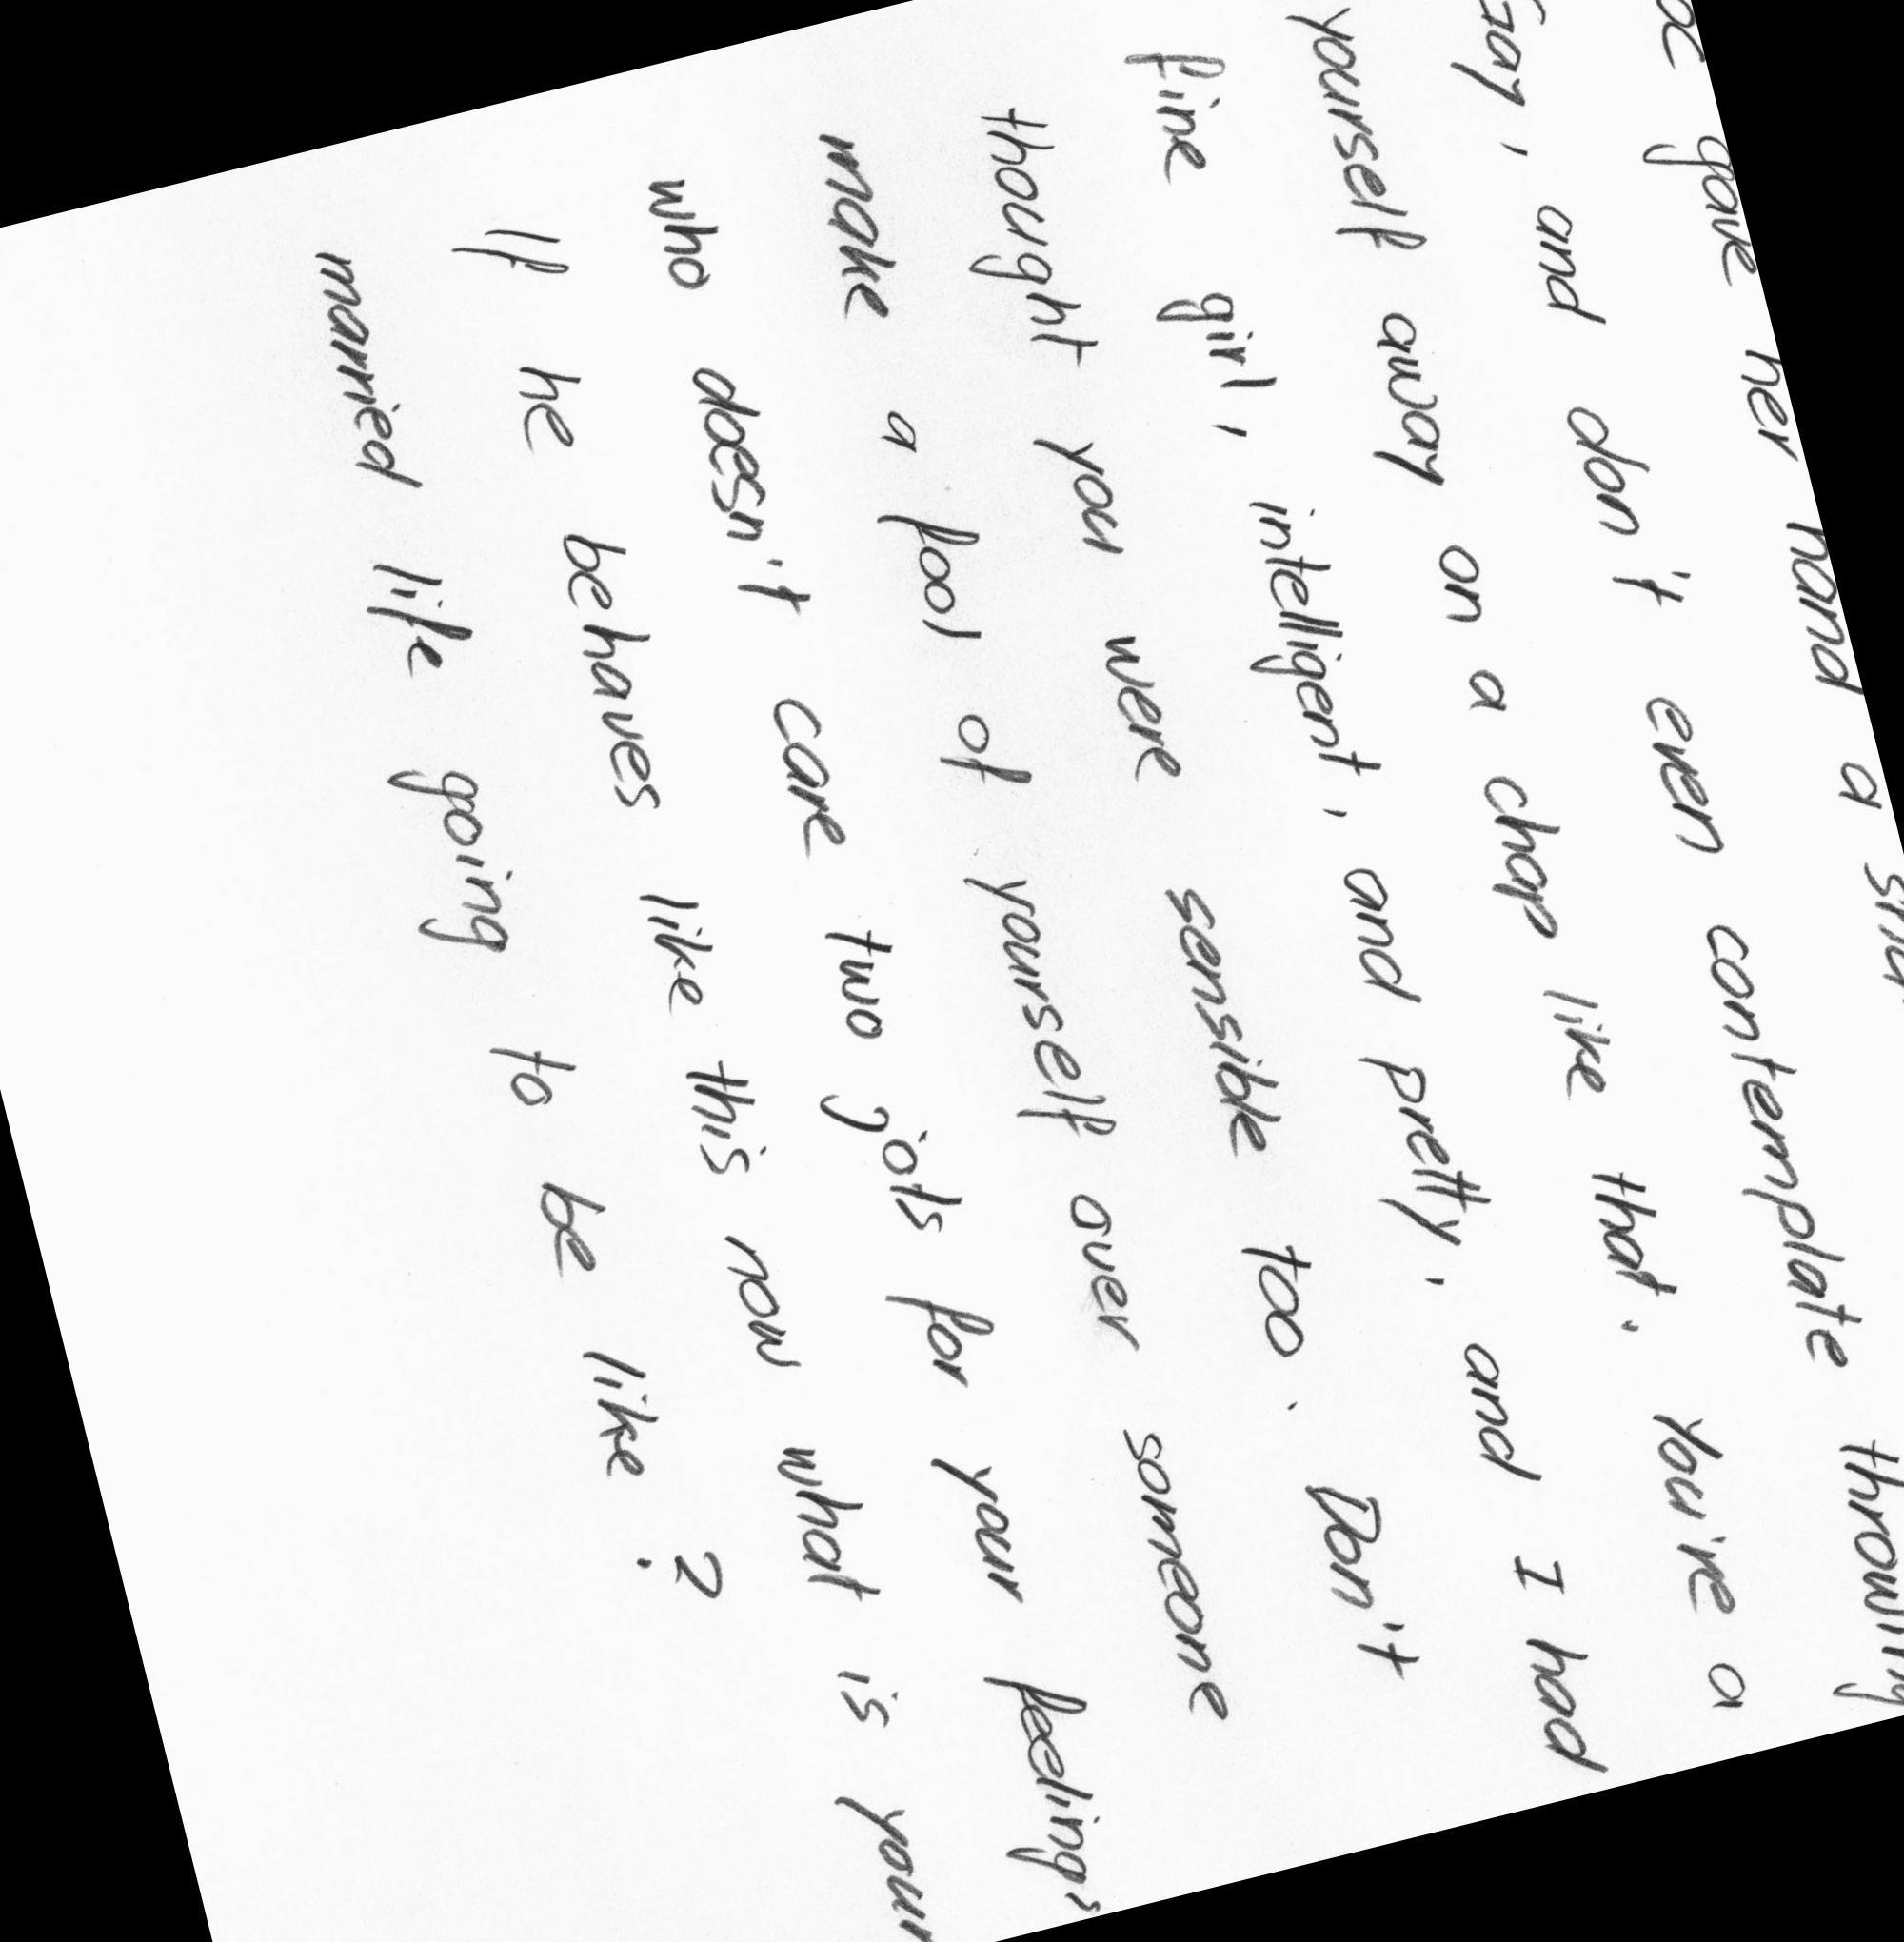 gave her hand a
Gay, and don't even contemplate throwing
yourself away on a chap like that. You're a
fine girl, intelligent, and pretty, and I had
thought you were sensible too. Don't
make a fool of yourself over someone
who doesn't care two jots for your feelings
If he behaves like this now what is your
married life going to be like?